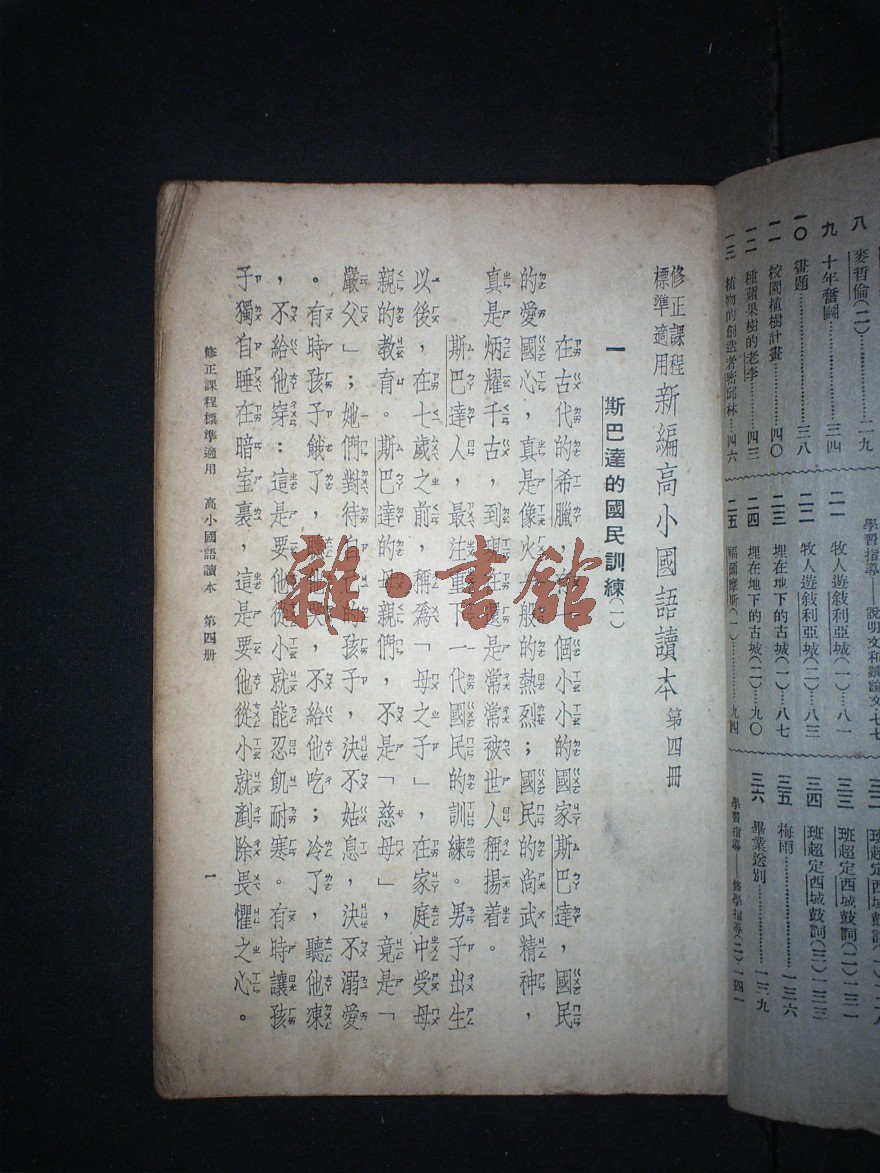 八 麥哲倫(二)……二九
九 十年奮鬭……三四
一〇 畫題……三八
一一 校園植樹計畫……四〇
一二 種蘋果樹的老李……四三
一三 植物的創造者密邱林…四六
學習指導——說明文和議論文 七七
二一 牧人遊敍利亞城(一)…八一
二二 牧人遊敍利亞城(二)…八三
二三 埋在地下的古城(一)…八七
二四 埋在地下的古城(二)…九〇
二五 福爾摩斯(一)……九四
班超定西域鼓詞
三三 班超定西域鼓詞(二)一三一
三四 班超定西域鼓詞(三)一三三
三五 梅雨……一三六
三六 畢業送別……一三九
學習指導——修學指導(二)一四一
修正課程標準適用 新編高小國語讀本 第四冊
一 斯巴達的國民訓練(一)
在古代的希臘，個小小的國家斯巴達，國民
的愛國心，真是像火一般的熱烈；國民的尚武精神，
真是炳耀千古，到現在還是常常被世人稱揚着。
斯巴達人，最注重下一代國民的訓練。男子出生
以後，在七歲之前，稱爲「母之子」，在家庭中受母
親的教育。斯巴達的母親們，不是「慈母」，竟是「
嚴父」；她們對待自己的孩子，決不姑息，決不溺愛
。有時孩子餓了，聽他哭，不給他吃；冷了，聽他凍
，不給他穿：這是要他從小就能忍飢耐寒。有時讓孩
子獨自睡在暗室裏，這是要他從小就剷除畏懼之心。
修正課程標準適用 高小國語讀本 第四册 一
雜·書館